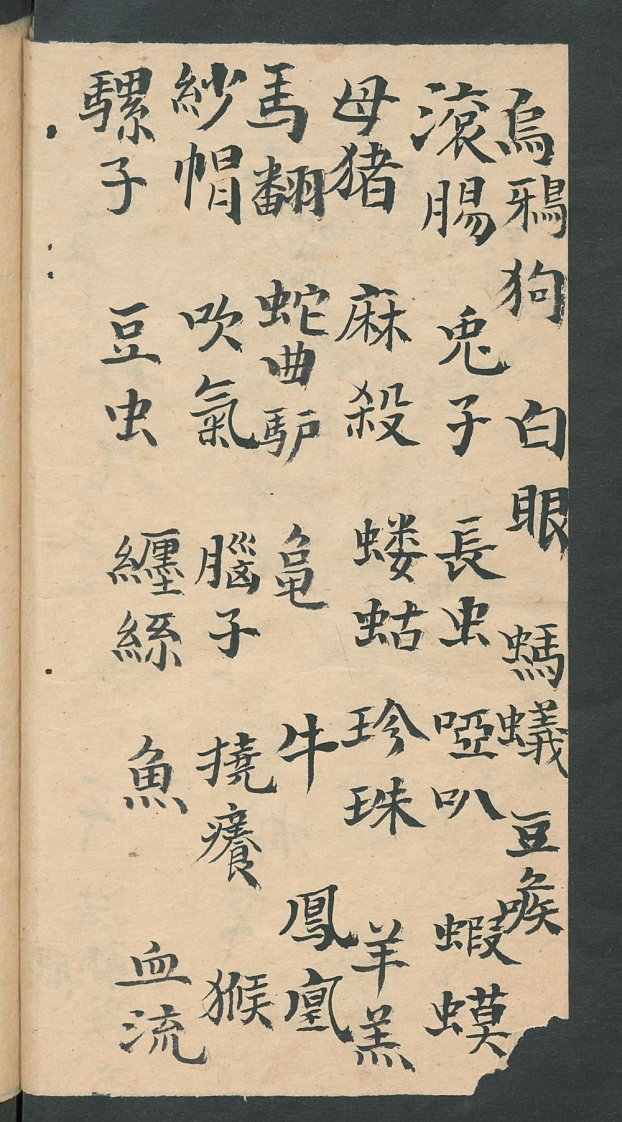 烏鴉狗 白眼 螞蟻 豆喉
滚腸 兎子 長虫 啞叭 蝦蟆
母猪 麻殺 蝼蛄 珍珠 羊羔
馬翻 蛇曲驴 黾 牛 鳳凰
紗帽 吹氣 腦子 撓癢 猴
騾子 豆虫 纒絲 魚 血流